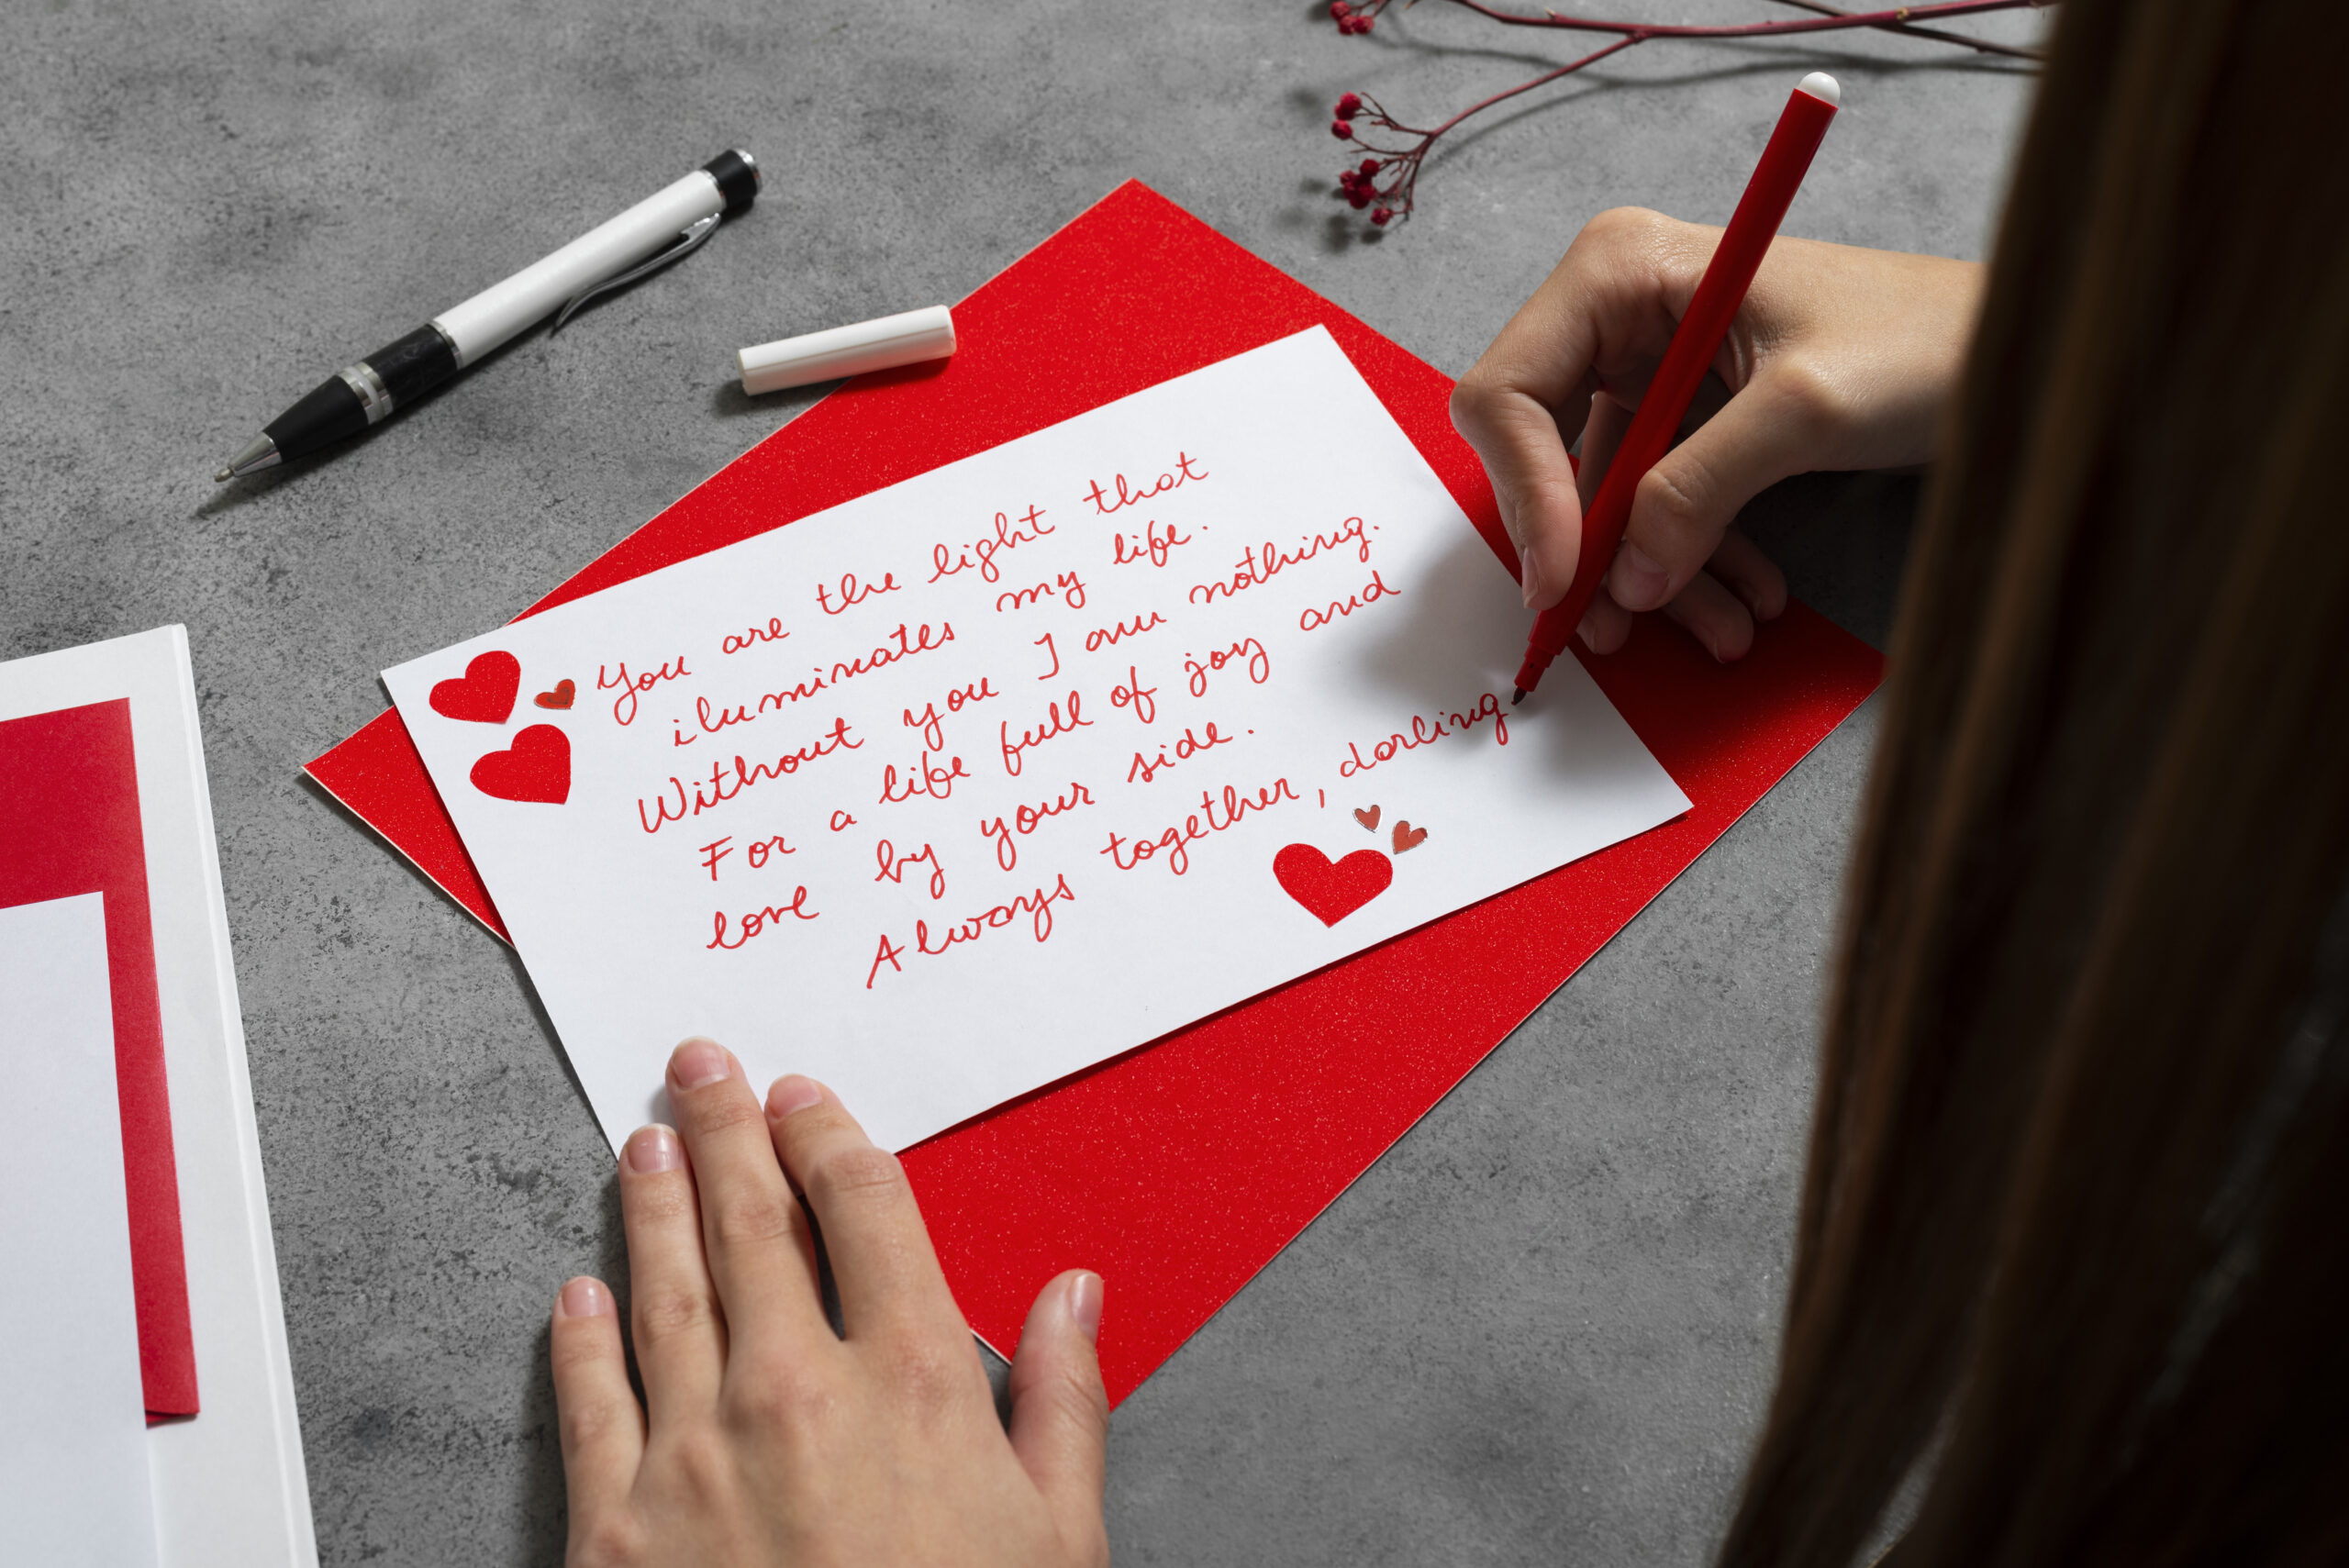 You are the light that
iluminates my life.
Without you I am nothing.
For a life full of joy and
love by your side.
Always together, darling